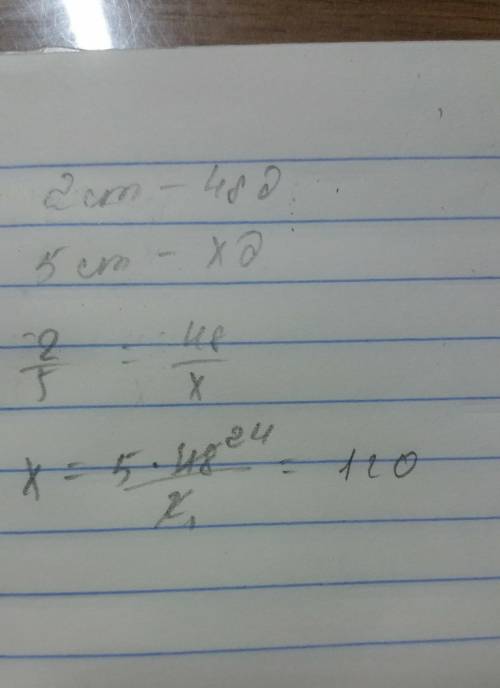 2 ст - 48 д
5 ст - х д
2/5 = 48/х
х = 5 · 48 24 / 2 1 = 120